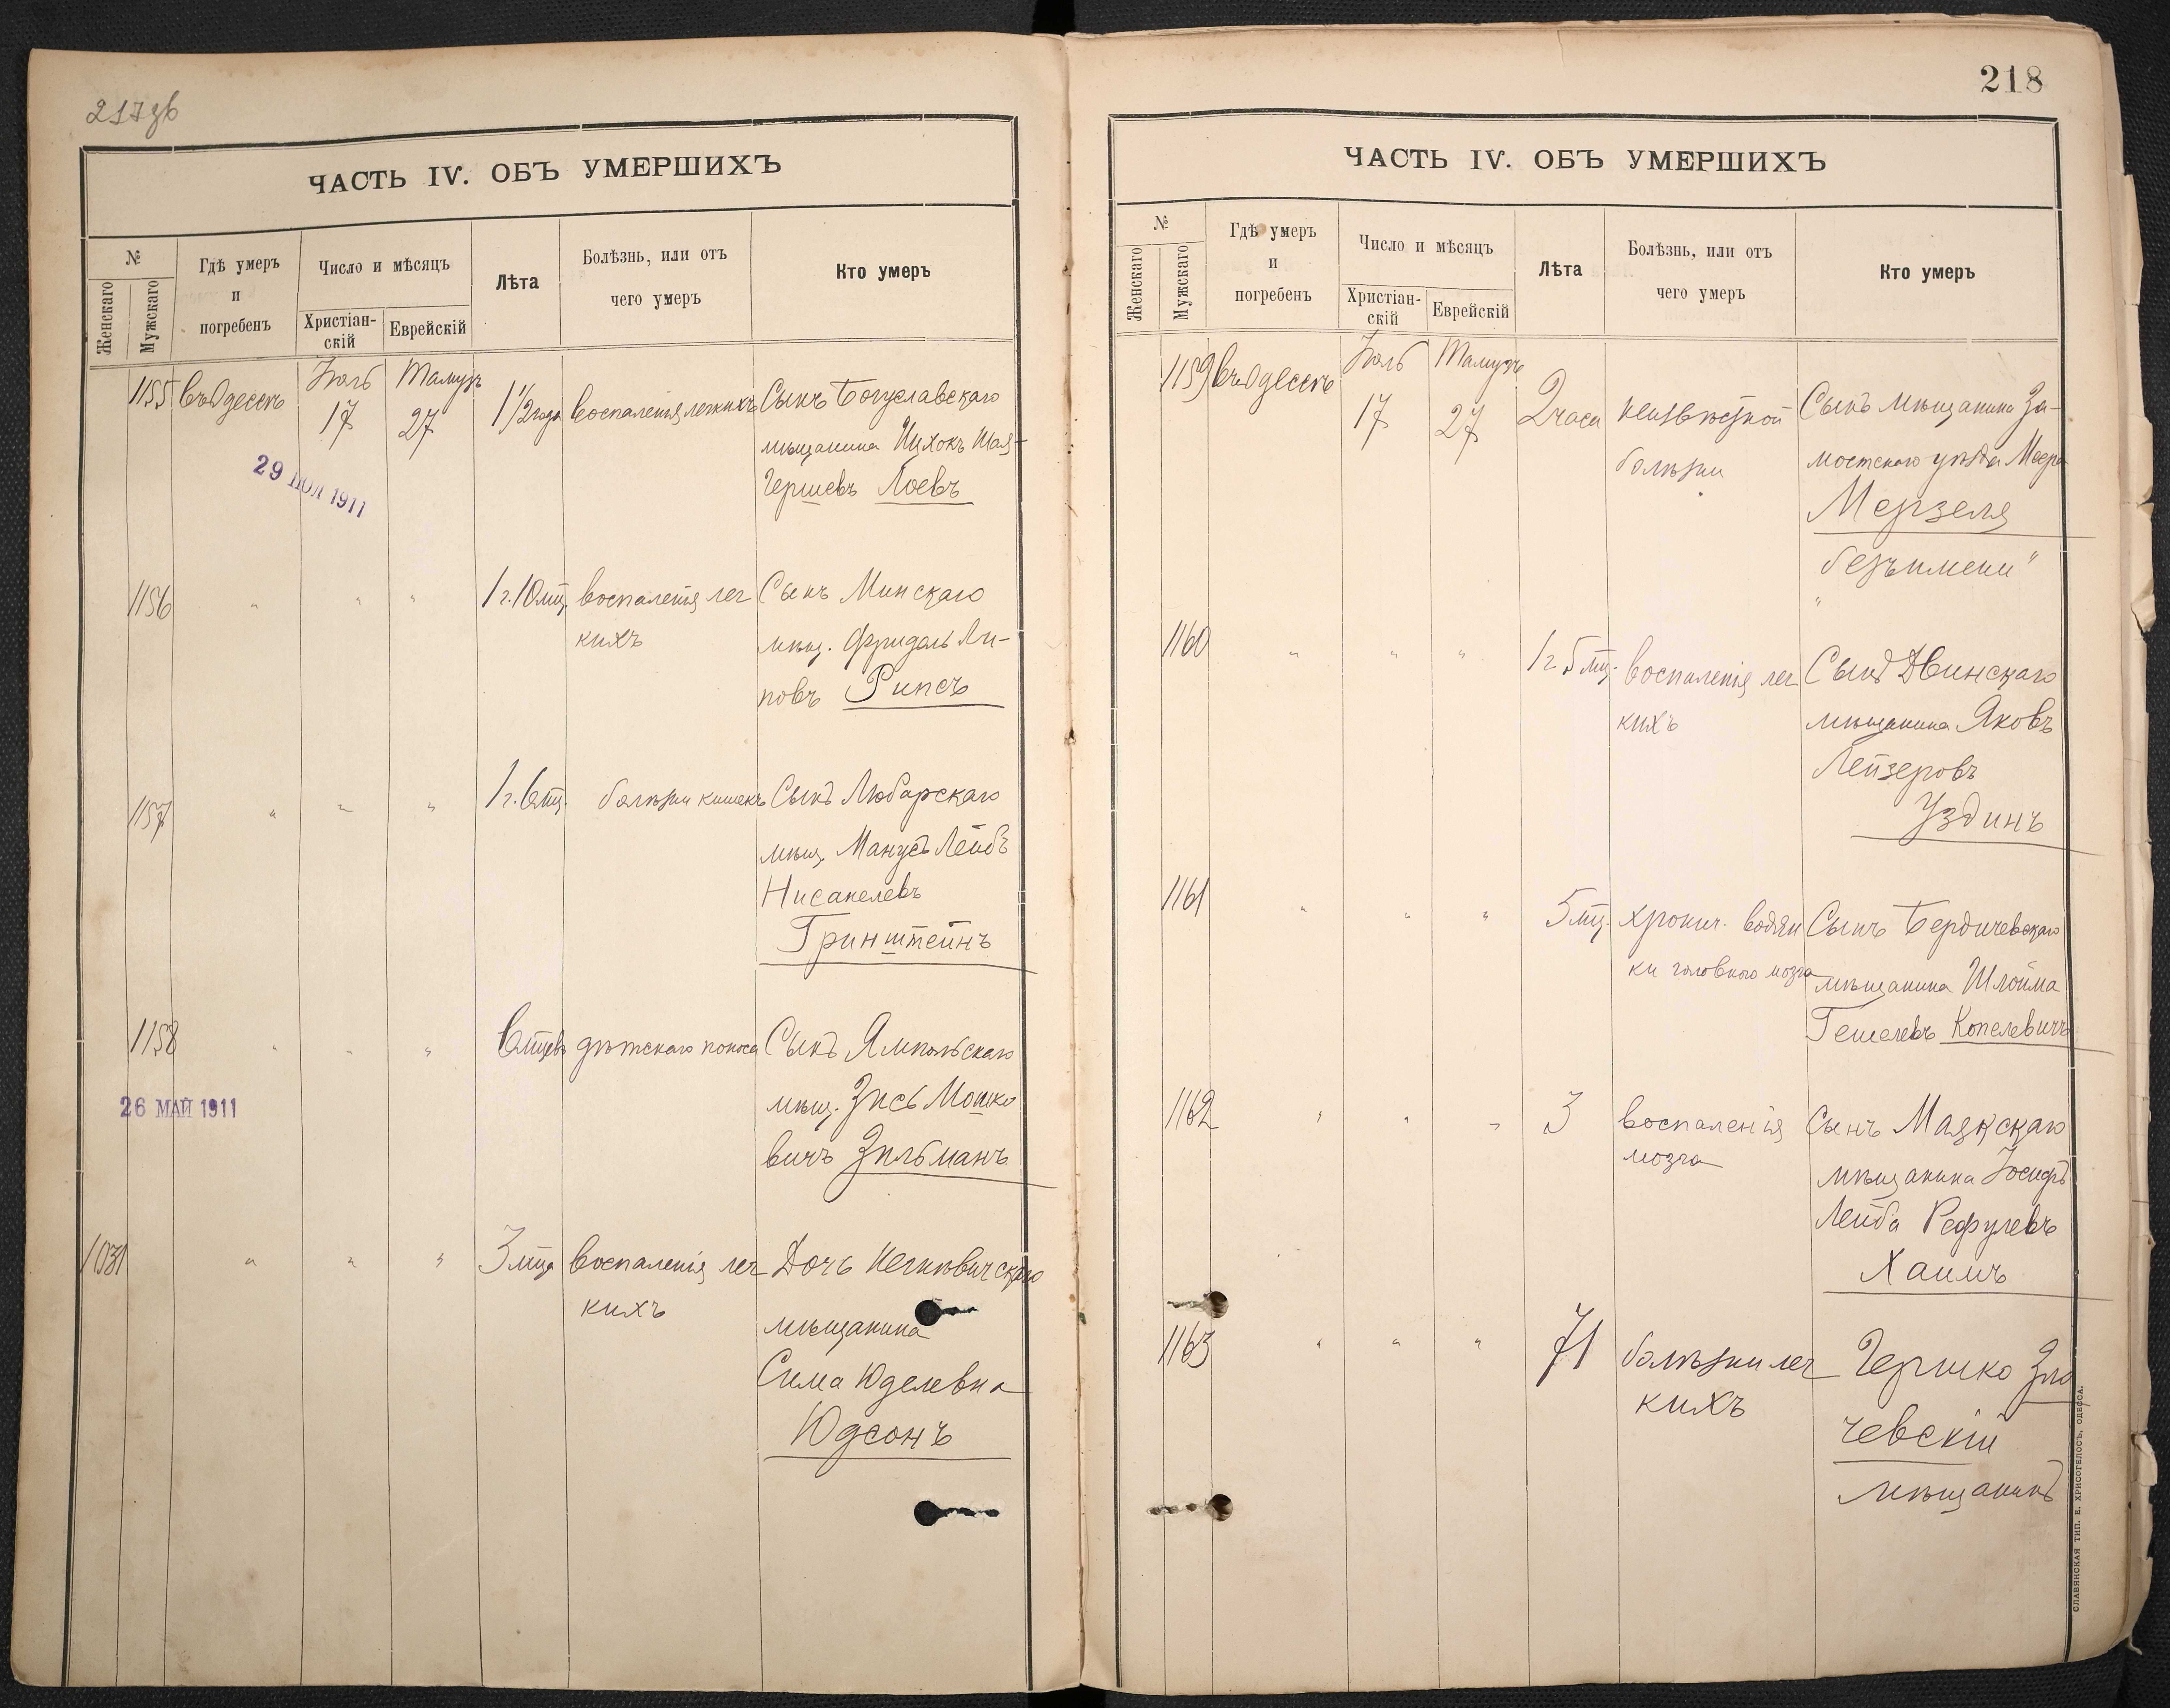 217зв
ЧАСТЬ IV. ОБЪ УМЕРШИХЪ
№
Женскаго
Мужскаго
Гдѣ умеръ
и
погребенъ
Число и мѣсяцъ
Христіан-
скій
Еврейскій
Лѣта
Болѣзнь, или отъ
чего умеръ
Кто умеръ
1155 въ Одессѣ Іюль 17 Тамузъ 27 1 1/2 года воспаленія легкихъ Сынъ Богуславскаго
мѣщанина Ицхокъ Шая-
Гершевъ Лоевъ
29 ІЮЛ 1911
1156 " " " 1 г. 10 мц. воспаленія лег Сынъ Минскаго
кихъ мѣщ. Фридель Ли-
повъ Рипсъ
1157 " " " 1 г. 6 мц. болѣзни кишекъ Сынъ Любарскаго
мѣщ. Манусъ Лейбъ
Нисанелевъ
Гринштейнъ
1158 " " " 6 мцевъ дѣтскаго поноса Сынъ Ямпольскаго
мѣщ. Зись Мошко
вичъ Зильманъ
26 МАЙ 1911
1031 " " " 3 мца воспаленія лег Дочь
кихъ мѣщанина
Сима Юделевна
Юдсонъ
218
ЧАСТЬ IV. ОБЪ УМЕРШИХЪ
№
Женскаго
Мужскаго
Гдѣ умеръ
и
погребенъ
Число и мѣсяцъ
Христіан-
скій
Еврейскій
Лѣта
Болѣзнь, или отъ
чего умеръ
Кто умеръ
1159 въ Одессѣ Іюль 17 Тамузъ 27 2 часа неизвѣстной Сынъ мѣщанина За-
болѣзни мостскаго уѣзда Меера
Мерзеля
"безъ имени"
1160 " " " 1 г. 5 мц. воспаленія лег Сынъ Двинскаго
кихъ мѣщанина Яковъ
Лейзеровъ
Уздинъ
1161 " " " 5 мц. хронич. водян Сынъ Бердичевскаго
ки головного мозга мѣщанина Шлойма
Гешелевъ Копелевичъ
1162 " " " 3 воспаленія Сынъ Маякскаго
мозга мѣщанина Іосифъ
Лейба Рефулевъ
Хаимъ
1163 " " " 71 болѣзни лег Гершко Зло
кихъ чевскій
мѣщанинъ
СЛАВЯНСКАЯ ТИП. Е. ХРИСОГЕЛОСЪ, ОДЕССА.